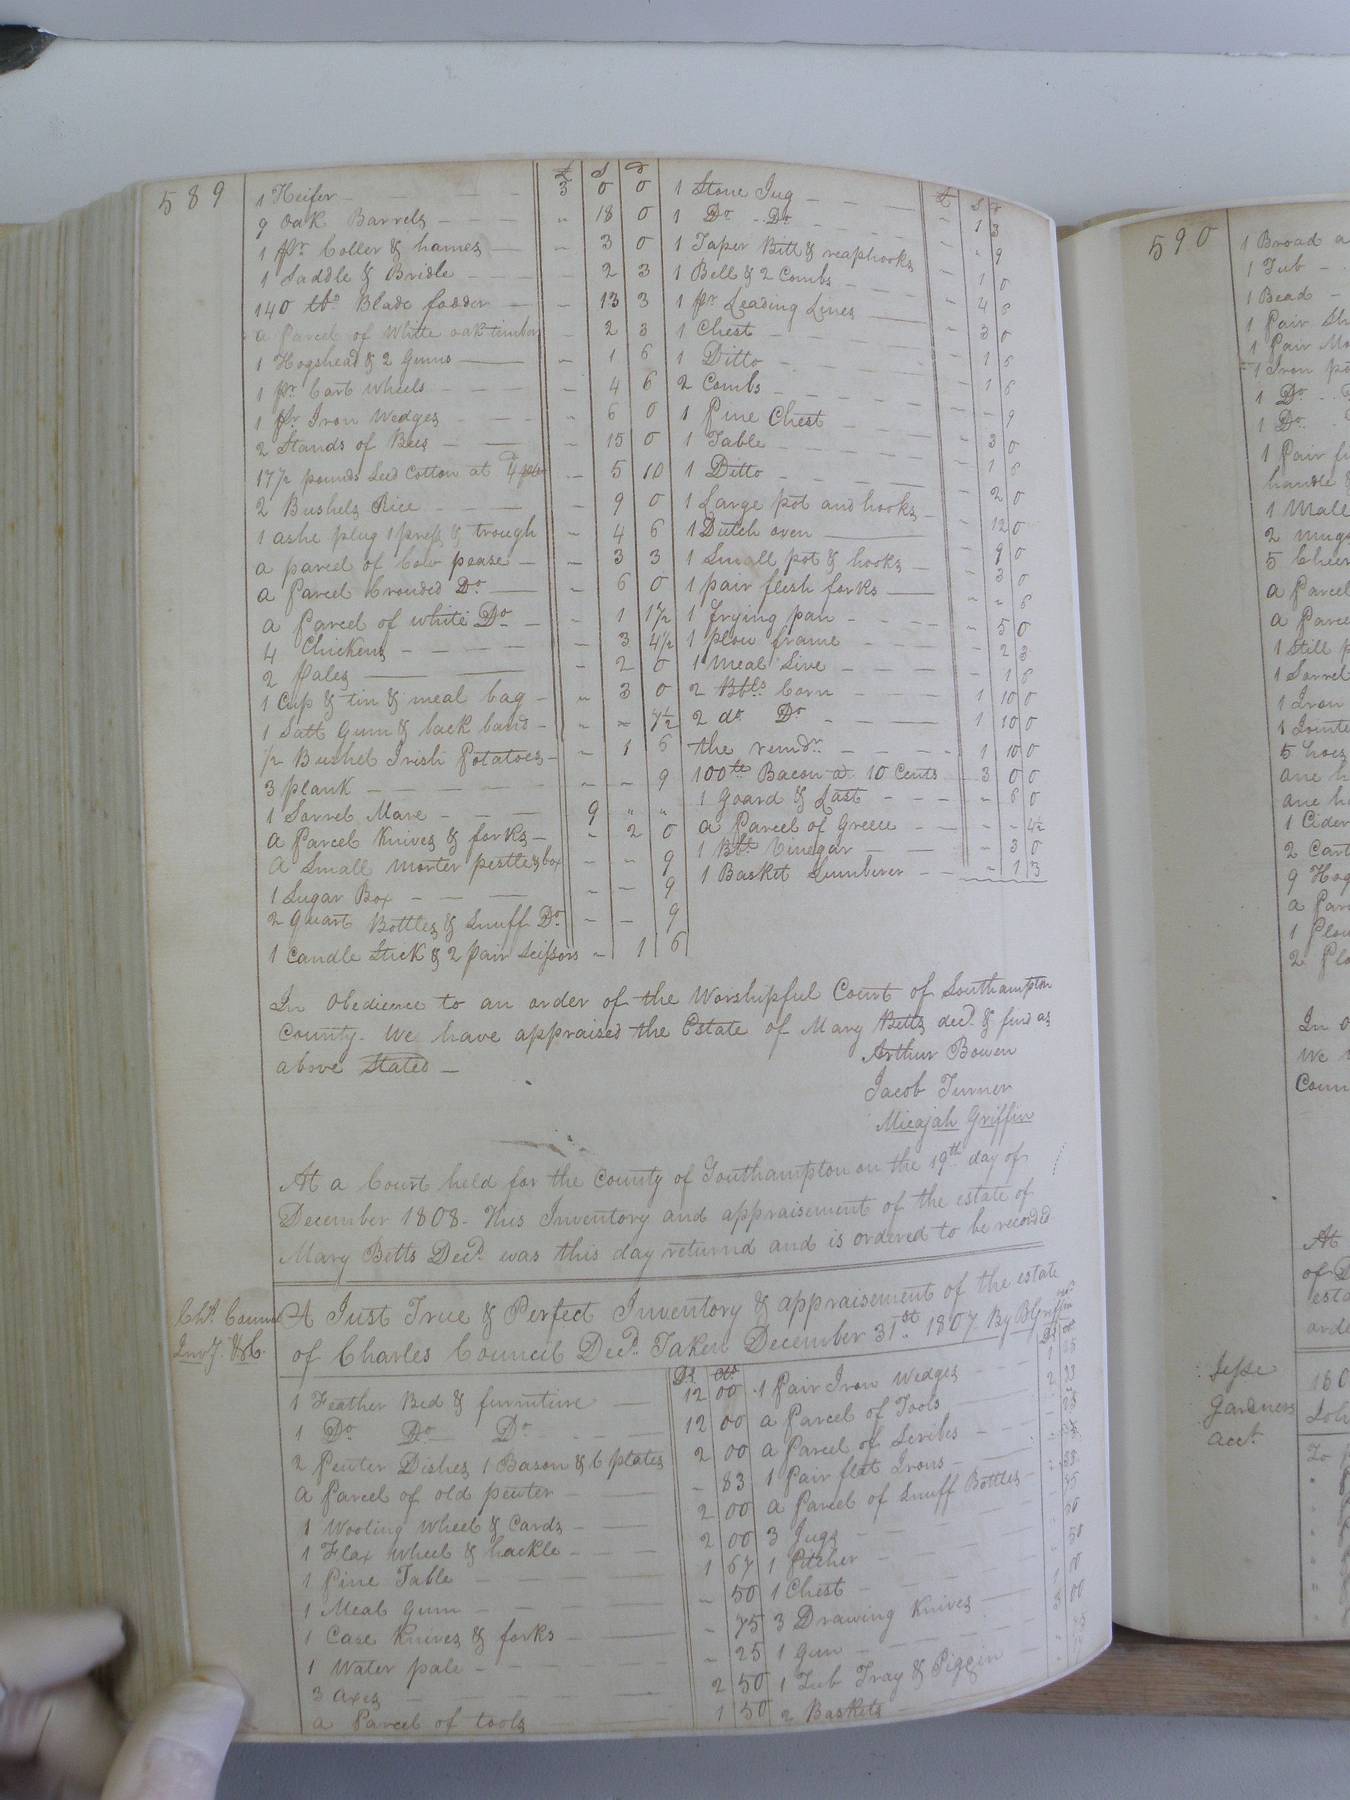 589
£ S d
1 Heifer 3 0 0
9 Oak Barrels " 18 0
1 Pr. Coller & hames " 3 0
1 Saddle & Bridle " 2 3
140 lbs Blade fodder " 13 3
a Parcel of White oak timber " 2 3
1 Hogshead & 2 Gums " 1 6
1 Pr. Cart wheels " 4 6
1 Pr Iron Wedges " 6 0
2 Stands of Bees " 15 0
17½ pounds Seed Cotton at 4d " 5 10
2 Bushels Rice " 9 0
1 ashe plug 1 press & trough " 4 6
a parcel of Cow pease " 3 3
a Parcel Crouded Do " 6 0
a Parcel of white Do " 1 1½
4 Chickens " 3 4½
2 Pales " 2 0
1 Cup & tin & meal bag " 3 0
1 Salt Gum & back band " " 7½
½ Bushel Irish Potatoes " 1 6
3 plank " " 9
1 Sorrel Mare 9 " "
a Parcel Knives & forks " 2 0
a Small morter pestle & box " " 9
1 Sugar Box " " 9
2 Quart Bottles & Snuff Do " " 9
1 Candle Stick & 2 pair Scissors " 1 6
£ S d
1 Stone Jug " 1 3
1 Do. Do " " 9
1 Taper Bitt & reaphooks " 1 0
1 Bell & 2 Combs " 4 6
1 Pr Leading Lines " 3 0
1 Chest " 1 6
1 Ditto " 1 6
2 Combs " " 9
1 Pine Chest " 3 0
1 Table " 1 6
1 Ditto " 2 0
1 Large pot and hooks " 12 0
1 Dutch oven " 9 0
1 Small pot & hooks " 3 0
1 pair flesh forks " " 6
1 Frying pan " 5 0
1 plow frame " 2 3
1 Meal Sive " 1 6
2 Bbls Corn 1 10 0
2 do. Do 1 10 0
the remdr. 1 10 0
100 lbs Bacon a 10 Cents 3 0 0
1 Goard & Last " 6 0
a Parcel of Greece " " 4½
1 Bbl. Vinegar " 3 0
1 Basket Lumberer " 1 3
In Obedience to an order of the Worshipful Court of Southampton
County. We have appraised the Estate of Mary Betts decd. & find as
above Stated
Arthur Bowen
Jacob Turner
Micajah Griffin
At a Court held for the County of Southampton on the 19th day of
December 1808. This Inventory and appraisement of the estate of
Mary Betts Decd. was this day returnd and is ordered to be recorded
Chs. Council
Invy. &C.
A Just True & Perfect Inventory & appraisement of the estate
of Charles Council Decd. Taken December 31st. 1807 By B Griffin
Ds. Cts.
1 Feather Bed & furniture 12 00
1 Do Do Do 12 00
2 Peuter Dishes 1 Bason & 6 plates 2 00
a Parcel of old peuter " 83
1 Wooling wheel & Cards 2 00
1 Flax wheel & hackle 2 00
1 Pine Table 1 67
1 Meal Gum " 50
1 Case Knives & forks " 75
1 Water pale " 25
3 axes 2 50
a Parcel of tools 1 50
1 Pair Iron Wedges
a Parcel of Tools
a Parcel of
1 Pair flat Irons
a Parcel of Snuff Bottles
3 Jugs
1 Pitcher
1 Chest
3 Drawing Knives
1 Gun
1 Tub Tray & Piggin
2 Baskets
590
1 Broad a
1 Tub
1 Bead
1 Pair
1 Pair
1 Iron po
1 Do
1 Do
1 Pair
handle &
1 Male
2 mugs
5 Cheer
a Parcel
a Parce
1 Still
1 Sorrel
1 Iron
1 Jointe
5 hoes
one h
one ho
1 Cider
2 Cart
9 Hog
a Par
1 Plow
2 Plo
In o
We
Coun
At
of D
esta
orde
Jesse
Gardners
acct.
180
To